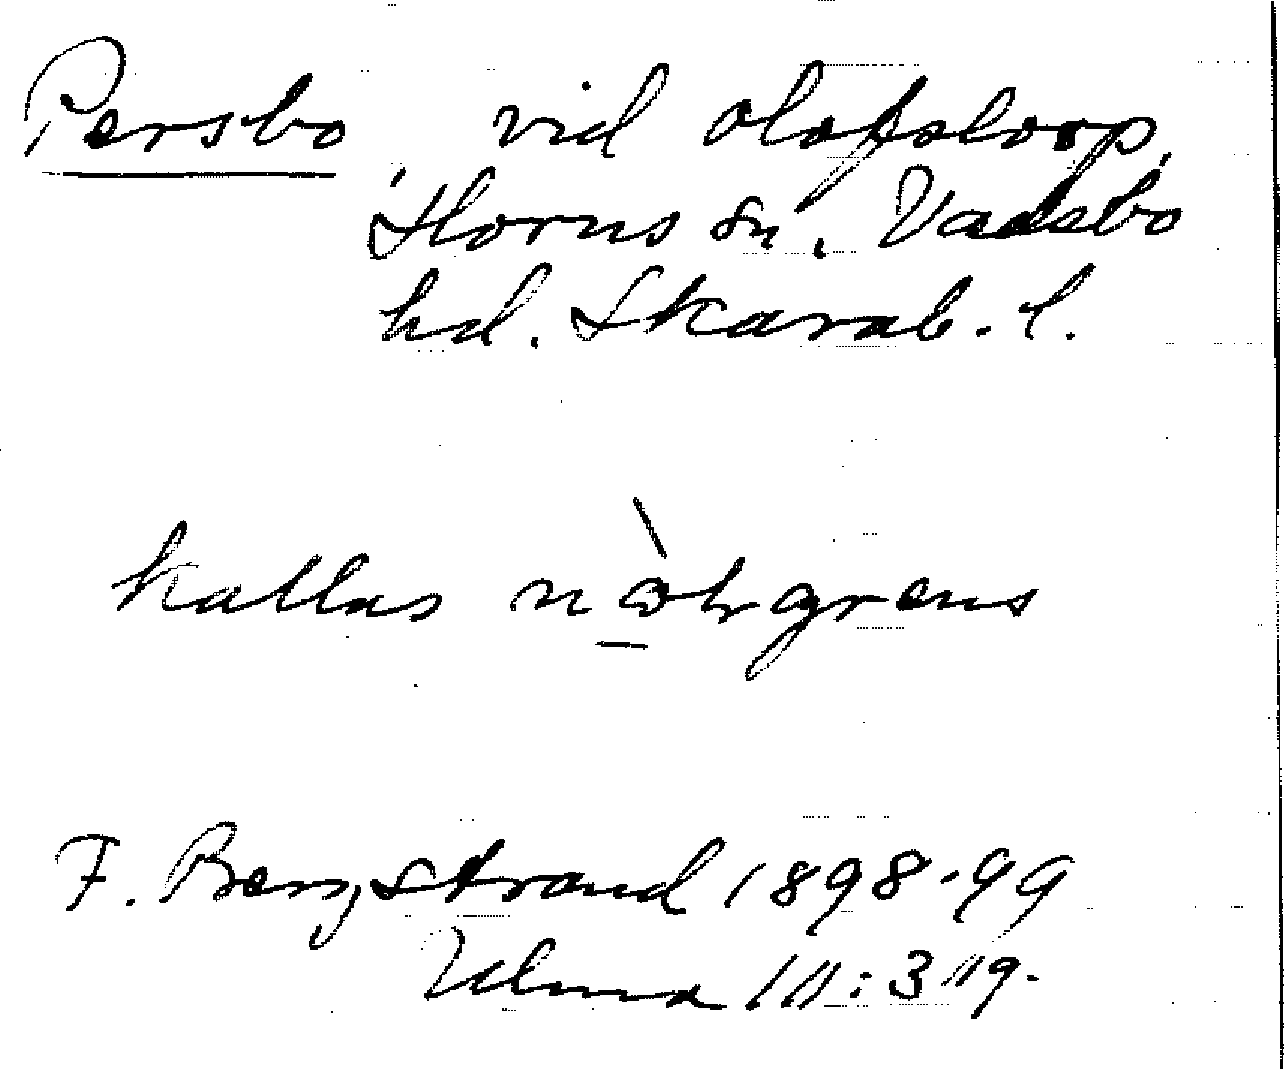 Persbo vid Olofsloop,
Horns sn, Vadsbo
hd. Skarab. l.
kallas
F. Bergstrand 1898-99
Ulma 111:319.